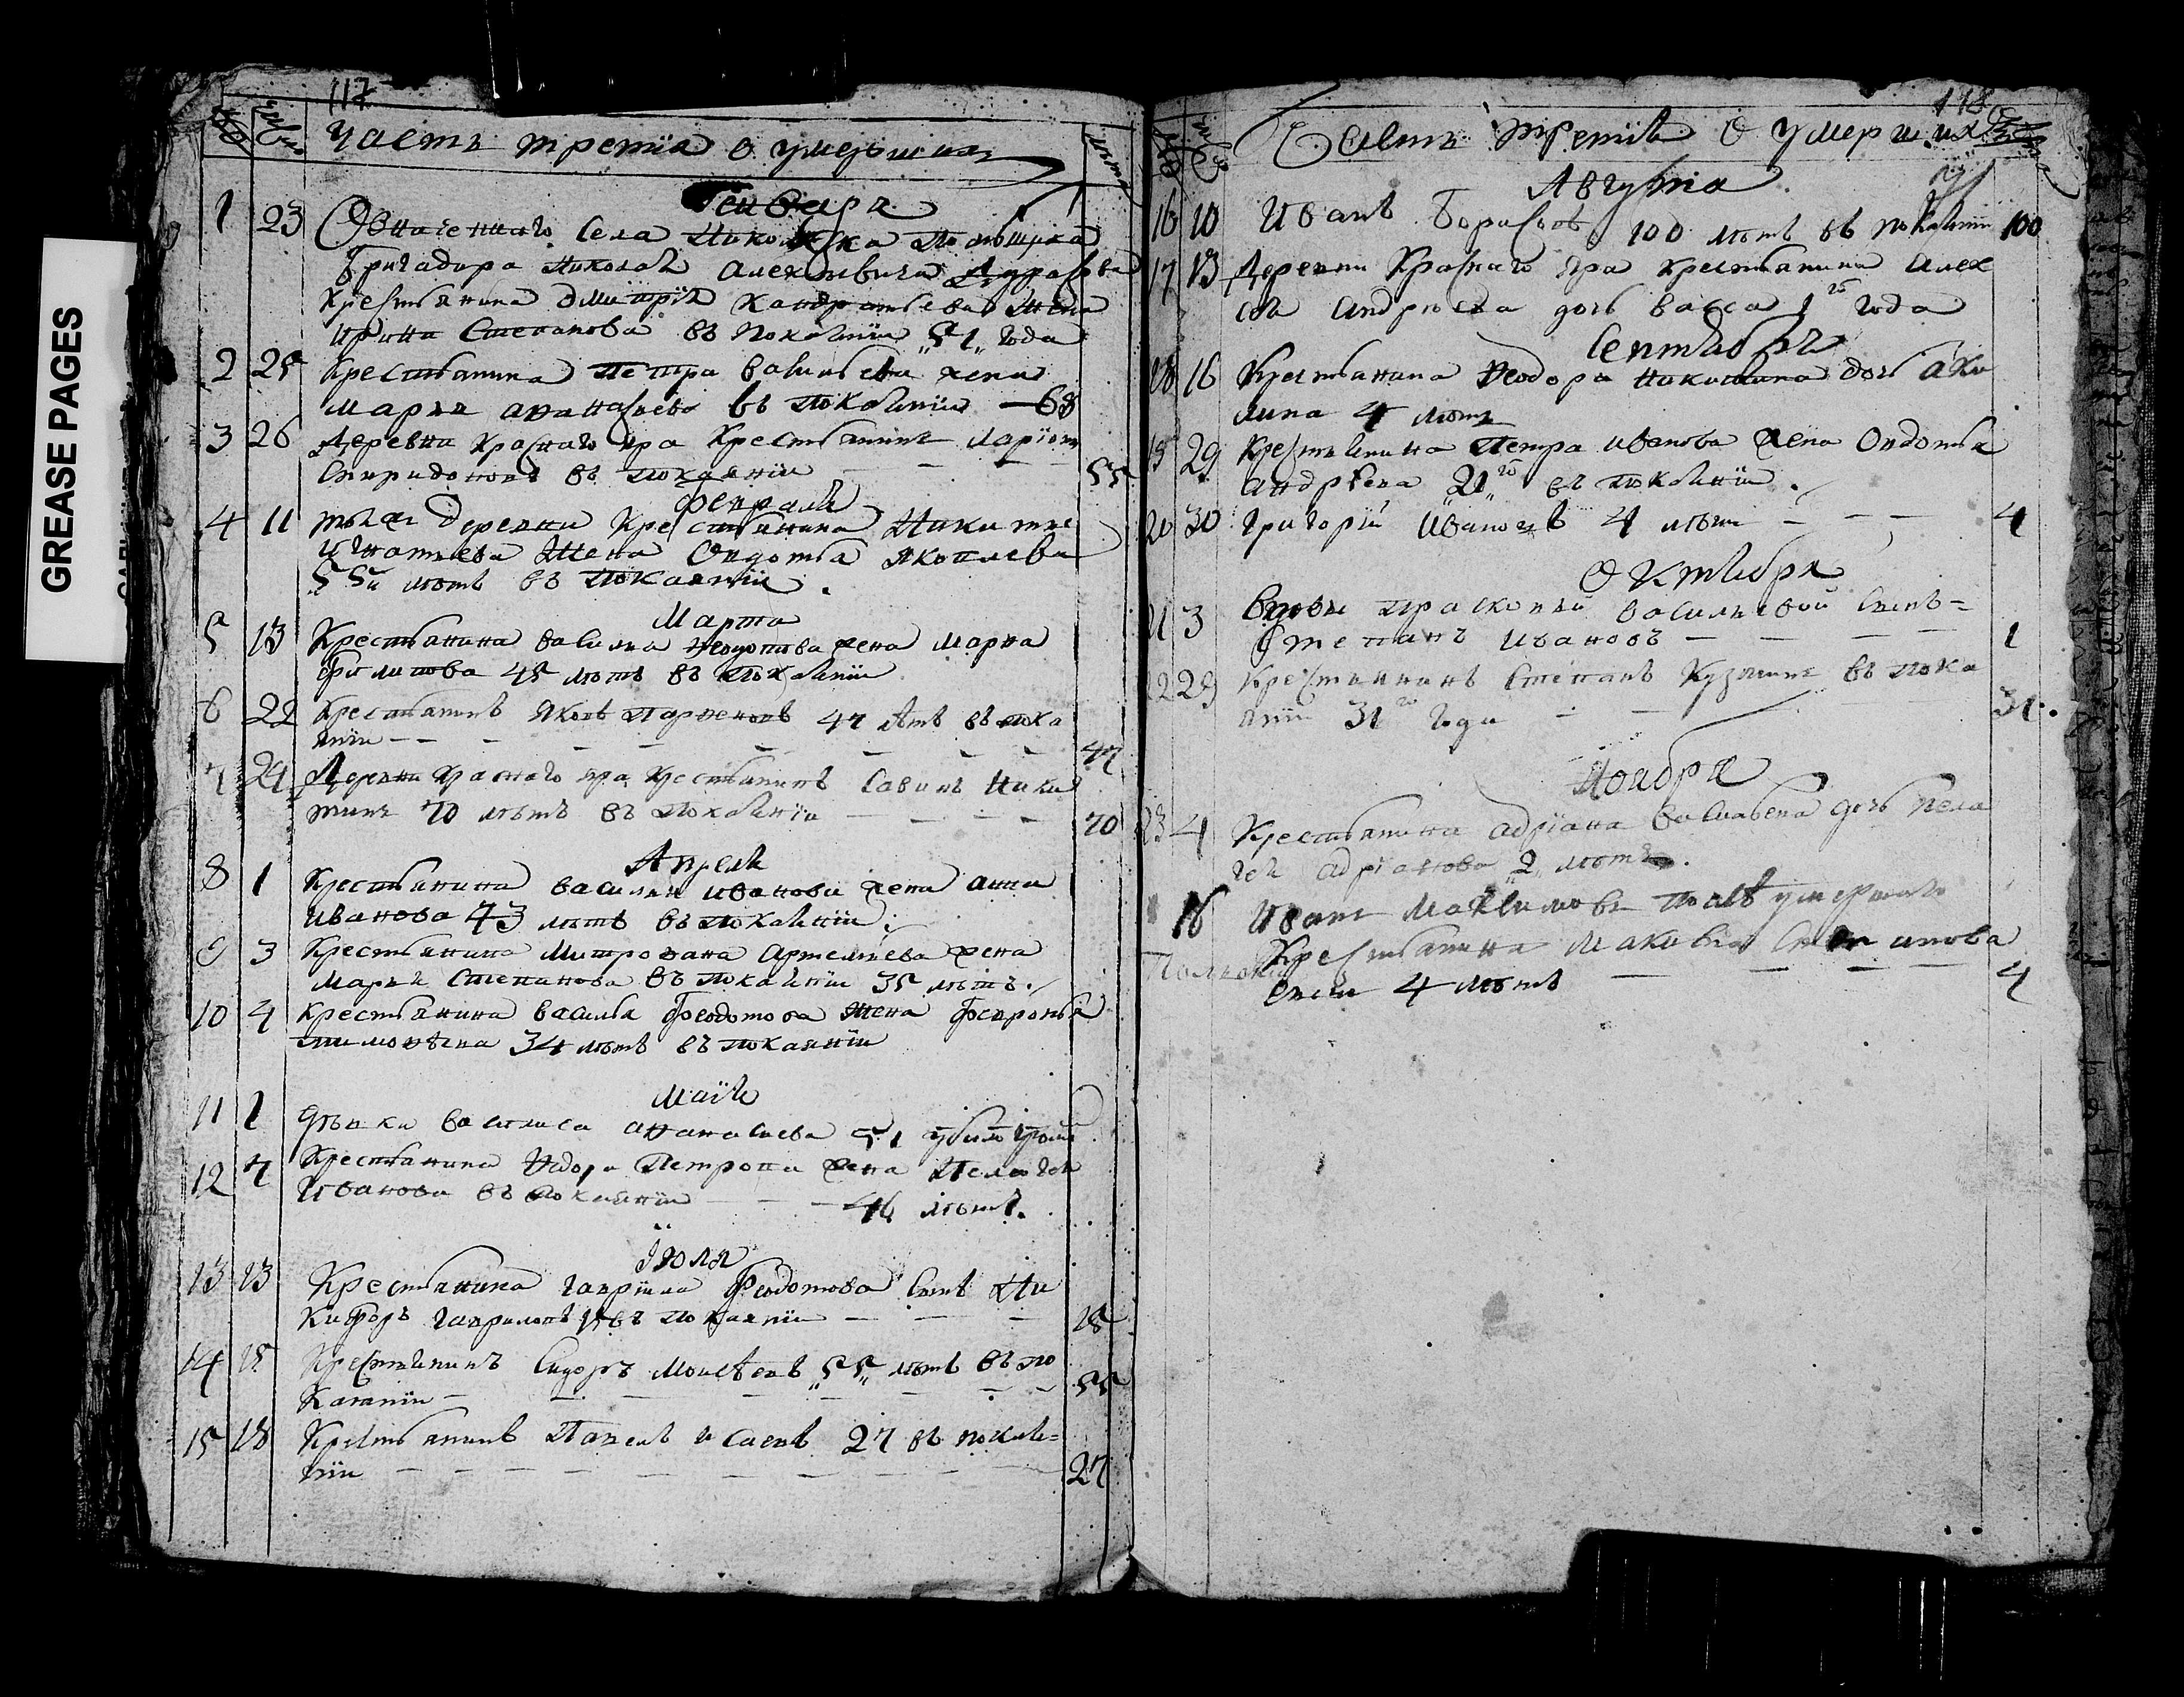 GREASE PAGES
117
Часть третïя о умершихъ
лѣта
Генваря
1 23 Означеннаго села Никольска помѣщика
бригадира Николая Алексѣевича Дурасова
крестьянина Дмитрïя Кандратьева жена
Ирина Степанова въ покаянïи 51 года
2 25 Крестьянина Петра Васильева жена
Марья Афанасьева въ покаянïи — 68
3 26 Деревни Краснаго яра крестьянинъ Ларïонъ
Спиридоновъ въ покаянïи — — — 55
Февраля
4 11 тоя деревни крестьянина Никиты
Игнатьева жена Овдотья Яковлева
55и лѣтъ въ покаянïи.
Марта
5 13 Крестьянина Василья Феодотова жена Марѳа
Филипова 45 лѣтъ въ покаянïи
6 22 Крестьянинъ Яковъ Парфеновъ 47 лѣтъ въ пока
янïи — — — — — — 47
7 24 Деревни Краснаго яра крестьянинъ Савинъ Ники
тинъ 70 лѣтъ въ покаянïи — — — — 70
Апреля
8 1 Крестьянина Василья Иванова жена Анна
Иванова 43 лѣтъ въ покаянïи.
9 3 Крестьянина Митрофана Артемьева жена
Марья Степанова въ покаянïи 35 лѣтъ.
10 4 Крестьянина Василья Феодотова жена Февронья
Тимофѣева 34 лѣтъ въ покаянïи
Маïя
11 1 дѣвка Василиса Афанасьева 51
12 7 Крестьянина Петрова жена Пелагея
Иванова въ покаянïи — — — 46 лѣтъ.
Iюля
13 13 Крестьянина Гаврïила Феодотова сынъ Ни
кифоръ Гавриловъ 18 въ покаянïи — — — 18
14 15 Крестьянинъ Сидоръ Моисѣевъ 55 лѣтъ въ по
каянïи — — — — — 55
15 18 Крестьянинъ Павелъ Исаевъ 27 въ покая=
нïи — — — — — — — — 27
118
Часть третïя о умершихъ
Августа
16 10 Иванъ Борисовъ 100 лѣтъ въ покаянïи 100
17 13 Деревни Краснаго яра крестьянина Алек
сѣя Андрѣева дочь Васса 1го года
Септября
18 16 Крестьянина Феодора Никитина дочь Аки
лина 4 лѣтъ
19 29 Крестьянина Петра Иванова жена Овдотья
Андрѣева 21го въ покаянïи.
20 30 Григорïй Ивановъ 4 лѣтъ — — — 4
Октября
21 3 Вдовы Прасковьи Васильевой сынъ=
Степанъ Ивановъ — — — — 1
22 29 Крестьянинъ Степанъ Кузминъ въ пока
янïи 31го года — — — 31.
Ноября
23 4 Крестьянина Адрïана Васильева дочь Пела
гея Адрïанова 2 лѣтъ.
16 Иванъ Максимовъ послѣ умершаго
Крестьянина Степанова
сынъ 4 лѣтъ — — — — 4